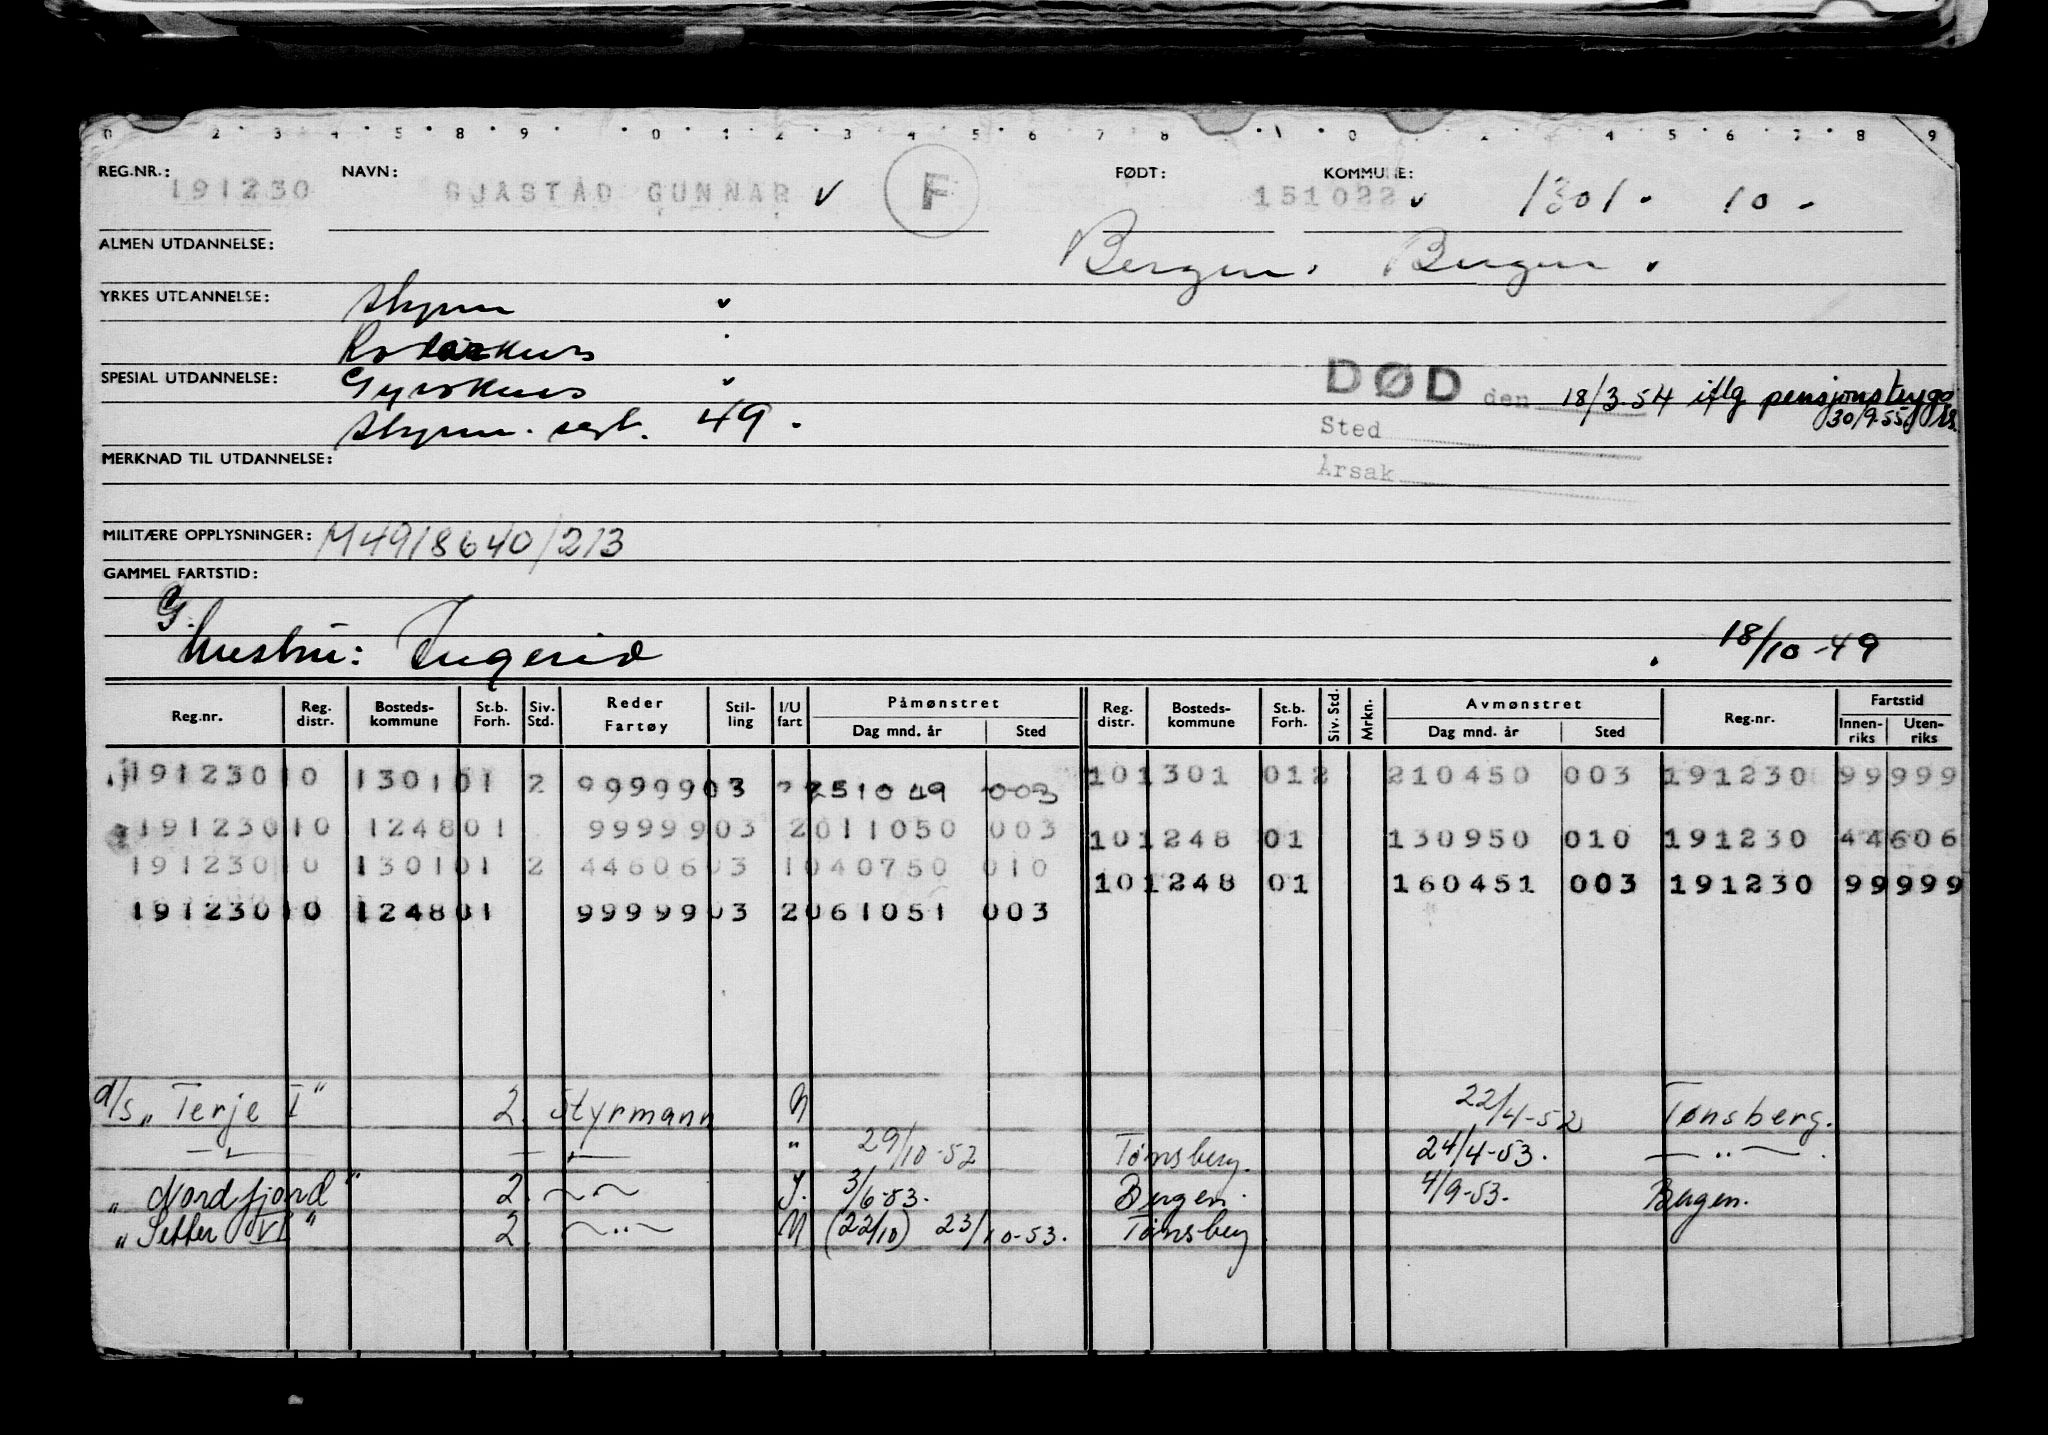 REG.NR.: 191230 NAVN: GJASTAD GUNNAR v F FØDT: 151022 v KOMMUNE: 1301. 10.
ALMEN UTDANNELSE: Bergen. Bergen.
YRKES UTDANNELSE: styrm v
Radarkurs
SPESIAL UTDANNELSE: Gyrokurs v
DØD den 18/3.54 iflg pensjonstrygd
styrm. sert. 49.
Sted 30/9-55
MERKNAD TIL UTDANNELSE:
Årsak
MILITÆRE OPPLYSNINGER: M49/8640/213
GAMMEL FARTSTID:
G.
Hustru: Ingerid 18/10-49
Reg.nr. Reg. distr. Bosteds-kommune St.b. Forh. Siv. Std. Reder Fartøy Stil-ling I/U fart Påmønstret Dag mnd. år Sted Reg. distr. Bosteds-kommune St.b. Forh. Siv. Std. Mrkn. Avmønstret Dag mnd. år Sted Reg.nr. Fartstid Innen-riks Uten-riks
191230 10 1301 01 2 99999 03 2 251049 003 10 1301 01 2 210450 003 191230 99999
191230 10 1248 01 99999 03 2 011050 003 10 1248 01 130950 010 191230 44606
191230 10 1301 01 2 44606 03 1 040750 010 10 1248 01 160451 003 191230 99999
191230 10 1248 01 99999 03 2 061051 003
d/s „Terje I" 2. Styrmann U 22/4-52 Tønsberg.
— " — — " — " 29/10-52 Tønsberg. 24/4-53. — " —.
„Nordfjord" 2. — " — I. 3/6-53. Bergen. 4/9-53. Bergen.
„Setter VI" 2. — " — U (22/10) 23/10-53. Tønsberg